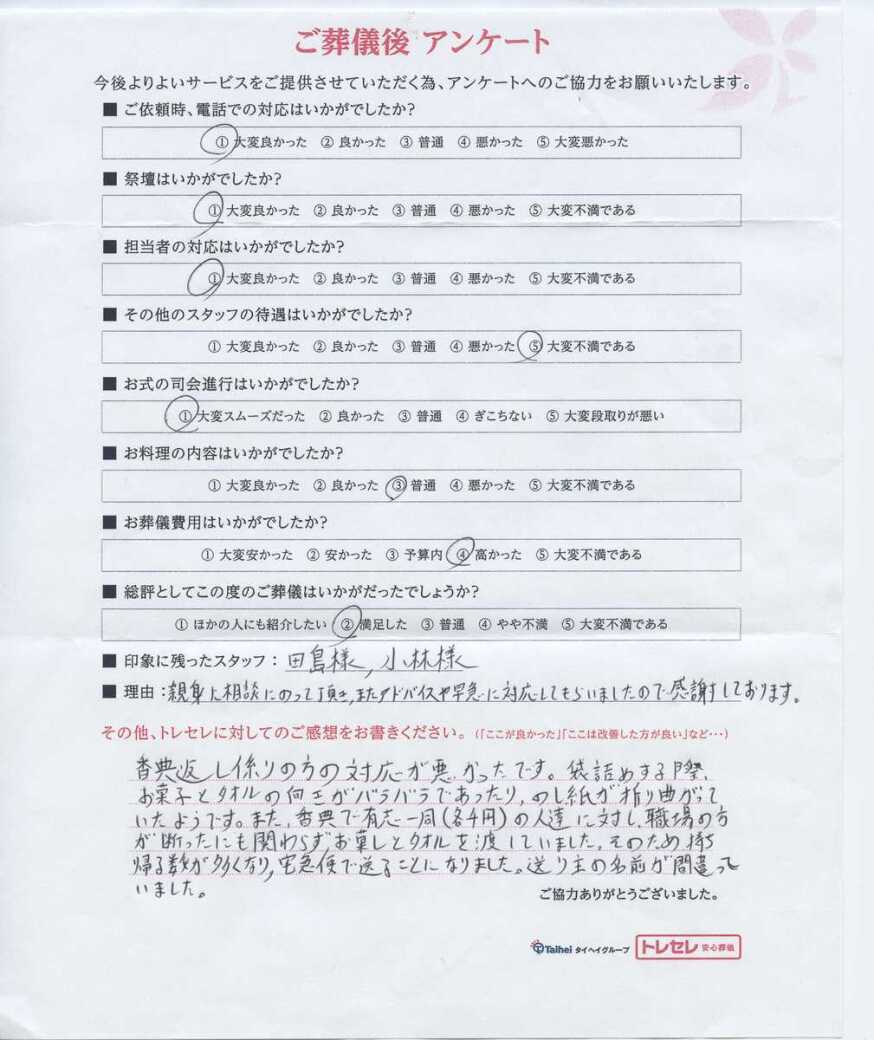 ご葬儀後 アンケート
今後よりよいサービスをご提供させていただく為、アンケートへのご協力をお願いいたします。
■ ご依頼時、電話での対応はいかがでしたか?
① 大変良かった ② 良かった ③ 普通 ④ 悪かった ⑤ 大変悪かった
■ 祭壇はいかがでしたか?
① 大変良かった ② 良かった ③ 普通 ④ 悪かった ⑤ 大変不満である
■ 担当者の対応はいかがでしたか?
① 大変良かった ② 良かった ③ 普通 ④ 悪かった ⑤ 大変不満である
■ その他のスタッフの待遇はいかがでしたか?
① 大変良かった ② 良かった ③ 普通 ④ 悪かった ⑤ 大変不満である
■ お式の司会進行はいかがでしたか?
① 大変スムーズだった ② 良かった ③ 普通 ④ ぎこちない ⑤ 大変段取りが悪い
■ お料理の内容はいかがでしたか?
① 大変良かった ② 良かった ③ 普通 ④ 悪かった ⑤ 大変不満である
■ お葬儀費用はいかがでしたか?
① 大変安かった ② 安かった ③ 予算内 ④ 高かった ⑤ 大変不満である
■ 総評としてこの度のご葬儀はいかがだったでしょうか?
① ほかの人にも紹介したい ② 満足した ③ 普通 ④ やや不満 ⑤ 大変不満である
■ 印象に残ったスタッフ: 田島様, 小林様
■ 理由: 親身に相談にのって頂き、またアドバイスや早急に対応してもらいましたので感謝しております。
その他、トレセレに対してのご感想をお書きください。(「ここが良かった」「ここは改善した方が良い」など・・・)
香典返し係りの方の対応が悪かったです。袋詰めする際、
お菓子とタオルの向きがバラバラであったり、のし紙が折り曲がって
いたようです。また、香典で有志一同(各千円)の人達に対し、職場の方
が断ったにも関わらず、お菓しとタオルを渡していました。そのため持ち
帰る数が多くなり、宅急便で送ることになりました。送り主の名前が間違って
いました。
ご協力ありがとうございました。
Taihei タイヘイグループ トレセレ 安心葬儀